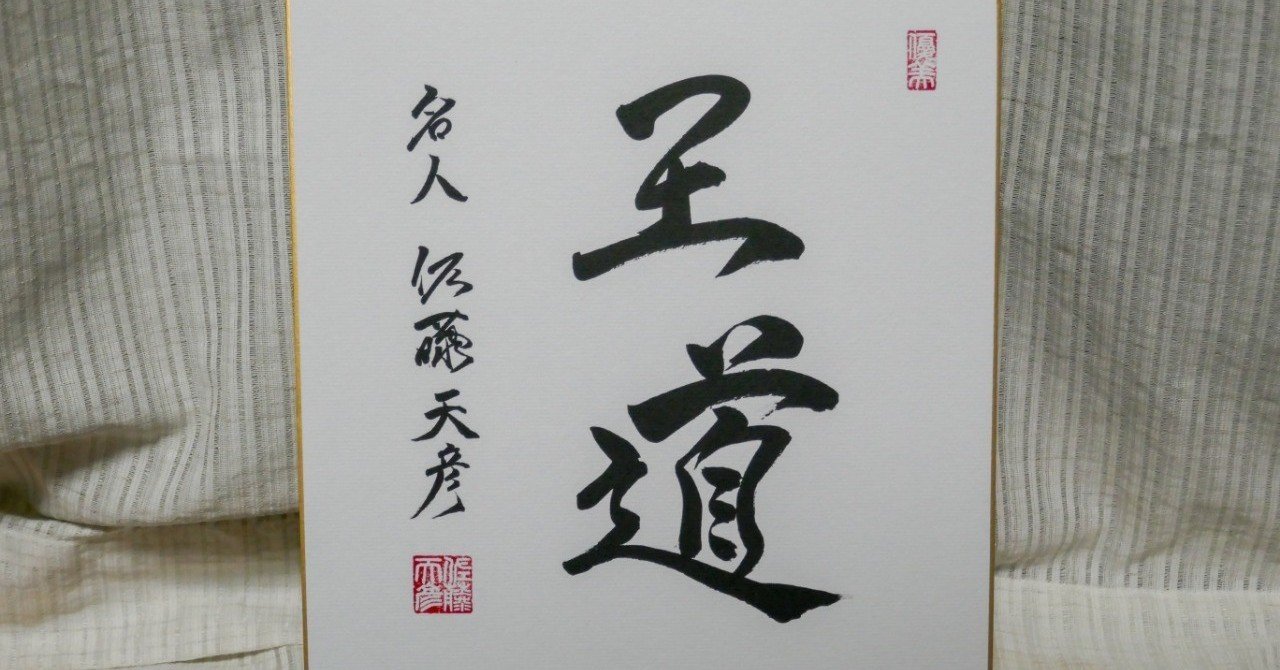 優美
王道
名人 佐藤天彦
佐藤天彦